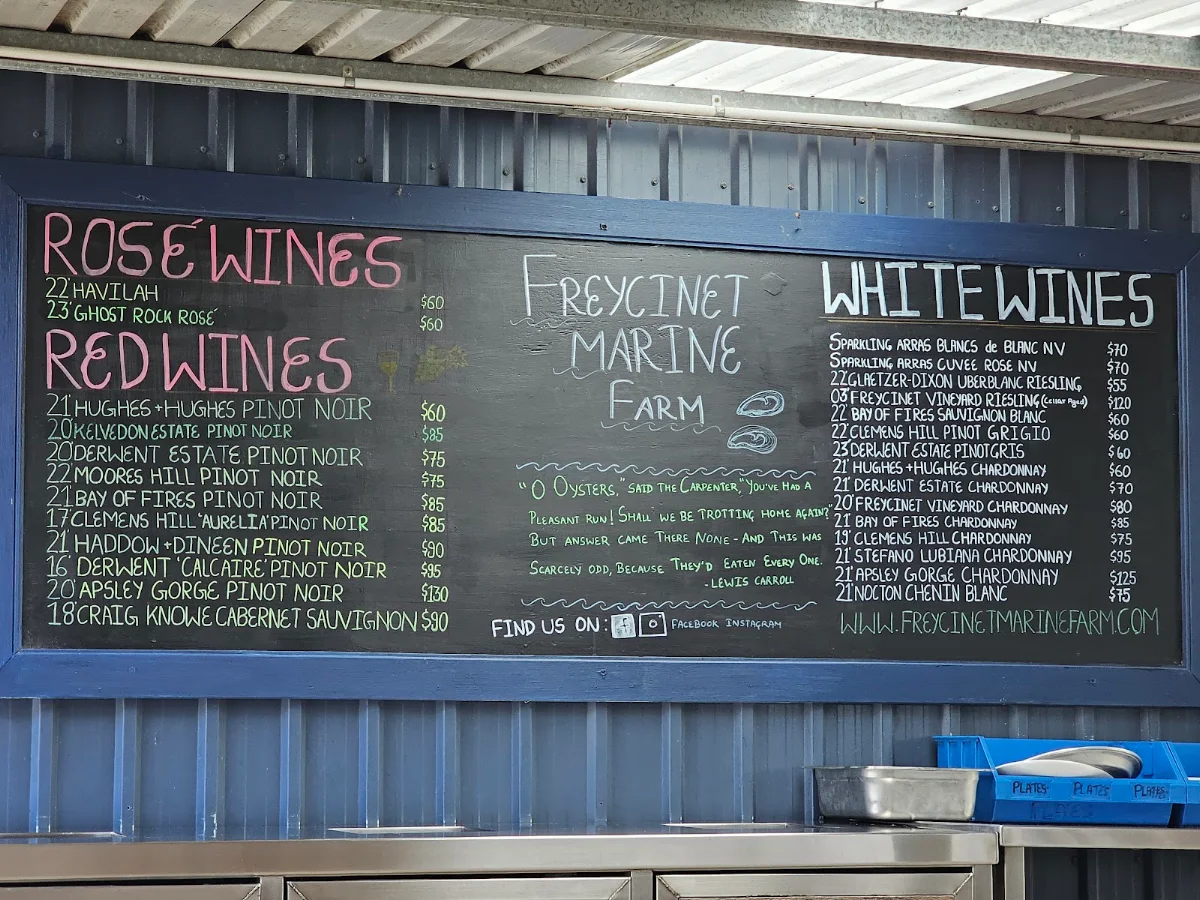 ROSÉ WINES
22' HAVILAH $60
23' GHOST ROCK ROSÉ $60
RED WINES
21' HUGHES + HUGHES PINOT NOIR $60
20' KELVEDON ESTATE PINOT NOIR $85
20' DERWENT ESTATE PINOT NOIR $75
22' MOORES HILL PINOT NOIR $75
21' BAY OF FIRES PINOT NOIR $85
17' CLEMENS HILL 'AURELIA' PINOT NOIR $85
21' HADDOW + DINEEN PINOT NOIR $90
16' DERWENT 'CALCAIRE' PINOT NOIR $95
20' APSLEY GORGE PINOT NOIR $130
18' CRAIG KNOWE CABERNET SAUVIGNON $90
FREYCINET
MARINE
FARM
"O OYSTERS," SAID THE CARPENTER, "YOU'VE HAD A
PLEASANT RUN! SHALL WE BE TROTTING HOME AGAIN?"
BUT ANSWER CAME THERE NONE - AND THIS WAS
SCARCELY ODD, BECAUSE THEY'D EATEN EVERY ONE.
-LEWIS CARROLL
FIND US ON: f FACEBOOK INSTAGRAM
WHITE WINES
SPARKLING ARRAS BLANCS de BLANC NV $70
SPARKLING ARRAS CUVEE ROSE NV $70
22' GLAETZER-DIXON UBERBLANC RIESLING $55
03' FREYCINET VINEYARD RIESLING (Cellar Aged) $120
22' BAY OF FIRES SAUVIGNON BLANC $60
22' CLEMENS HILL PINOT GRIGIO $60
23' DERWENT ESTATE PINOT GRIS $60
21' HUGHES + HUGHES CHARDONNAY $60
21' DERWENT ESTATE CHARDONNAY $70
20' FREYCINET VINEYARD CHARDONNAY $80
21' BAY OF FIRES CHARDONNAY $85
19' CLEMENS HILL CHARDONNAY $75
21' STEFANO LUBIANA CHARDONNAY $95
21' APSLEY GORGE CHARDONNAY $125
21' NOCTON CHENIN BLANC $75
WWW.FREYCINETMARINEFARM.COM
PLATES PLATES PLATES
PLATES